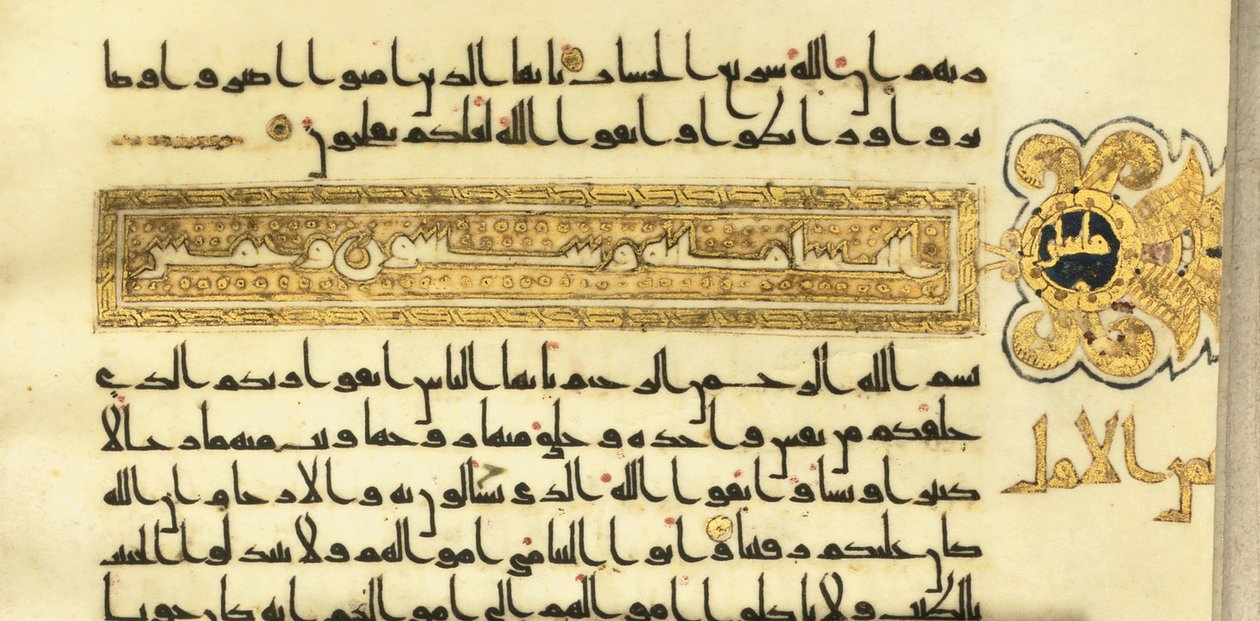 ربهم ان الله سريع الحساب يايها الذين امنوا اصبروا وصا
بروا ورابطوا واتقوا الله لعلكم تفلحون
النسا مائه وسبعون وخمس
بسم الله الرحمن الرحيم يايها الناس اتقوا ربكم الذي
خلقكم من نفس واحده وخلق منها زوجها وبث منهما رجالا
كثيرا ونسا واتقوا الله الذي تسالون به والارحام ان الله
كان عليكم رقيبا واتوا اليتمى اموالهم ولا تتبدلوا الخبيث
بالطيب ولا تاكلوا اموالهم الى اموالكم انه كان حوبا